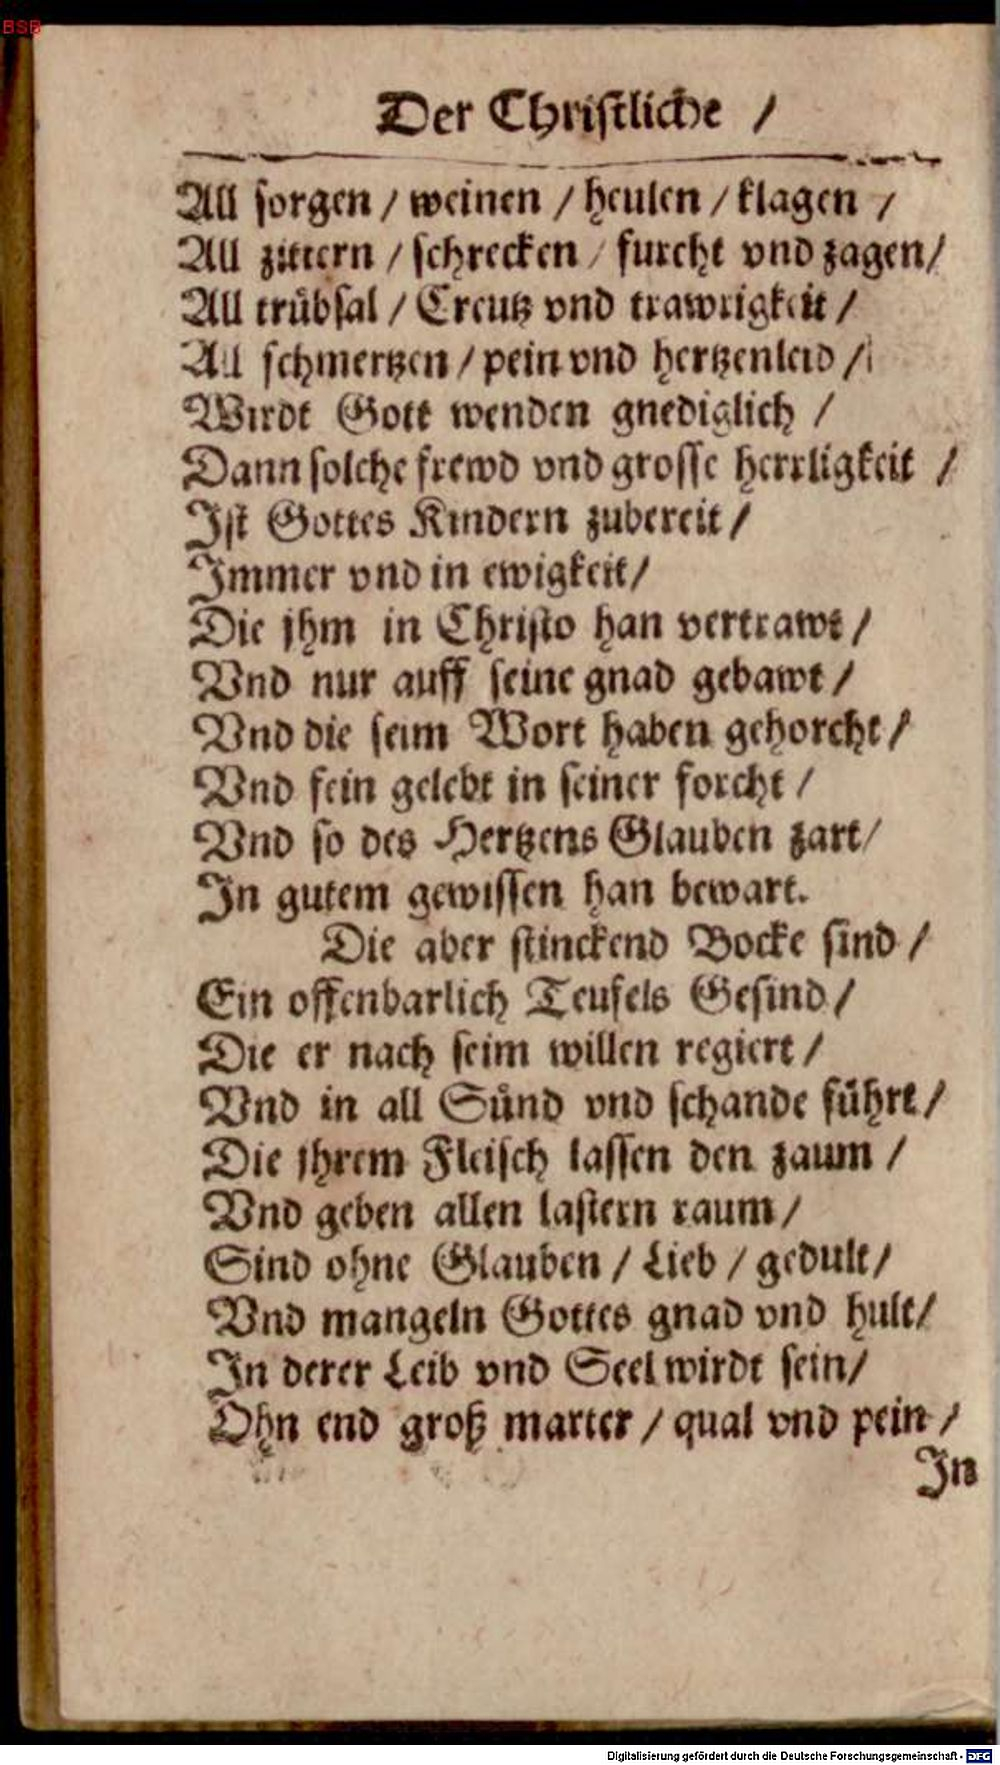 BSB
Der Chriſtliche /
All ſorgen / weinen / heulen / klagen /
All zittern / ſchrecken / furcht vnd zagen /
All truͤbſal / Creutz vnd trawrigkeit /
All ſchmertzen / pein vnd hertzenleid /
Wirdt Gott wenden gnediglich /
Dann ſolche frewd vnd groſſe herrligkeit /
Iſt Gottes Kindern zubereit /
Immer vnd in ewigkeit /
Die jhm in Chriſto han vertrawt /
Vnd nur auff ſeine gnad gebawt /
Vnd die ſeim Wort haben gehorcht /
Vnd fein gelebt in ſeiner forcht /
Vnd ſo des Hertzens Glauben zart /
In gutem gewiſſen han bewart.
Die aber ſtinckend Bocke ſind /
Ein offenbarlich Teufels Geſind /
Die er nach ſeim willen regiert /
Vnd in all Suͤnd vnd ſchande fuͤhrt /
Die jhrem Fleiſch laſſen den zaum /
Vnd geben allen laſtern raum /
Sind ohne Glauben / Lieb / gedult /
Vnd mangeln Gottes gnad vnd hult /
In derer Leib vnd Seel wirdt ſein /
Ohn end groß marter / qual vnd pein /
In
Digitalisierung gefördert durch die Deutsche Forschungsgemeinschaft - DFG